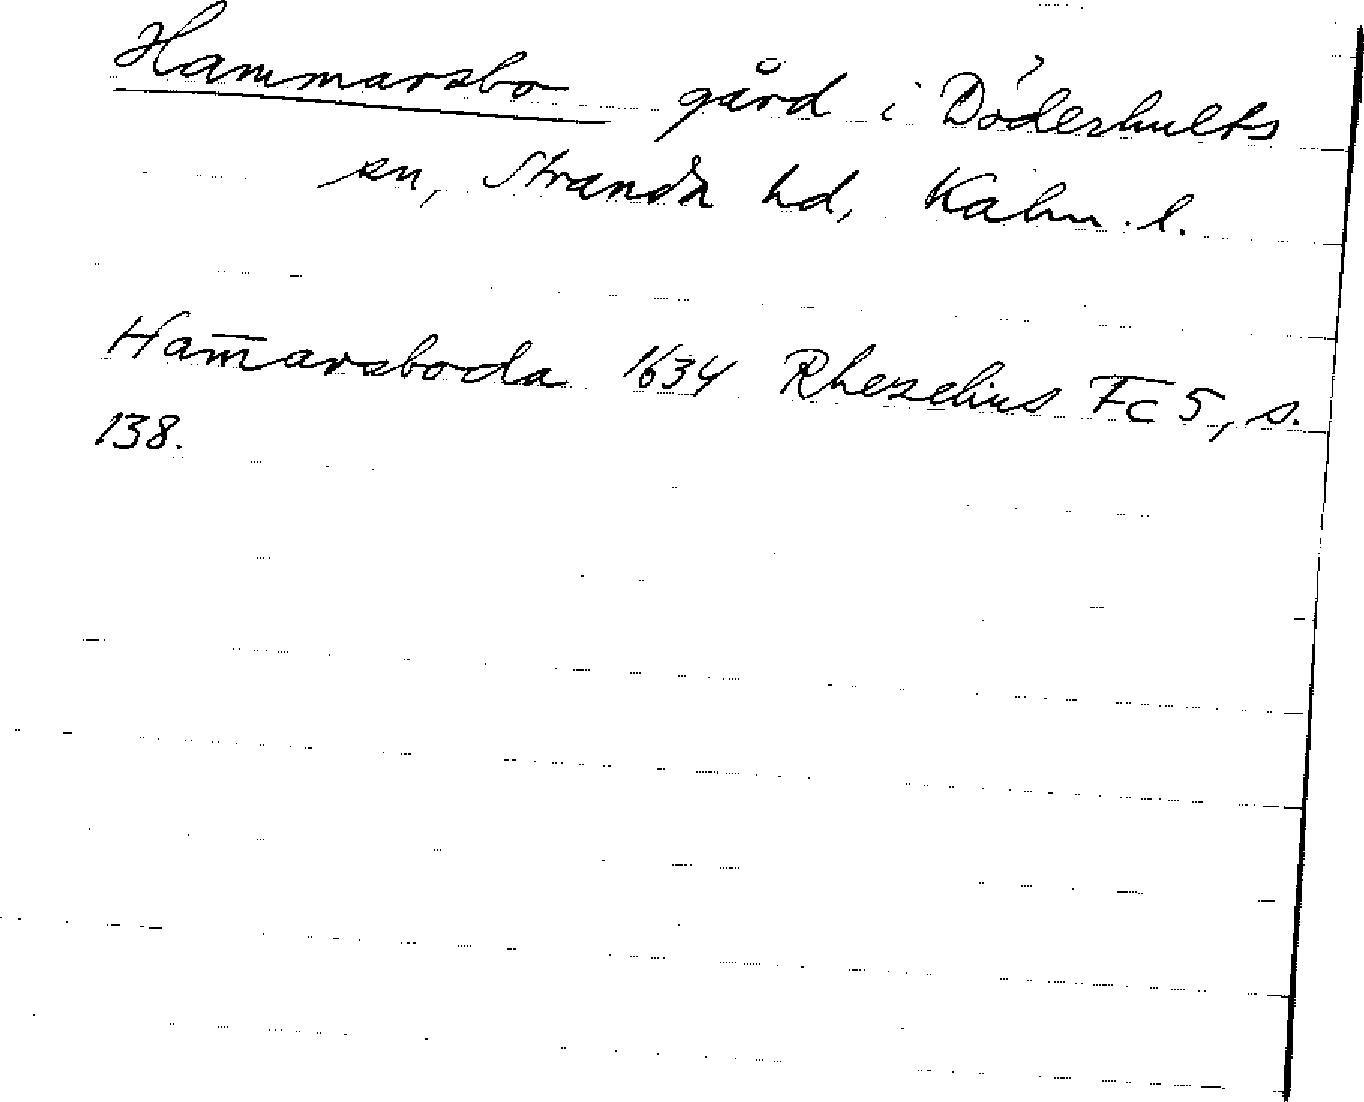 Hammarsbo gård i Döderhults
sn, Stranda hd, Kalm. l.
Ham̅arsboda 1634 Rhezelius Fc 5, s.
138.